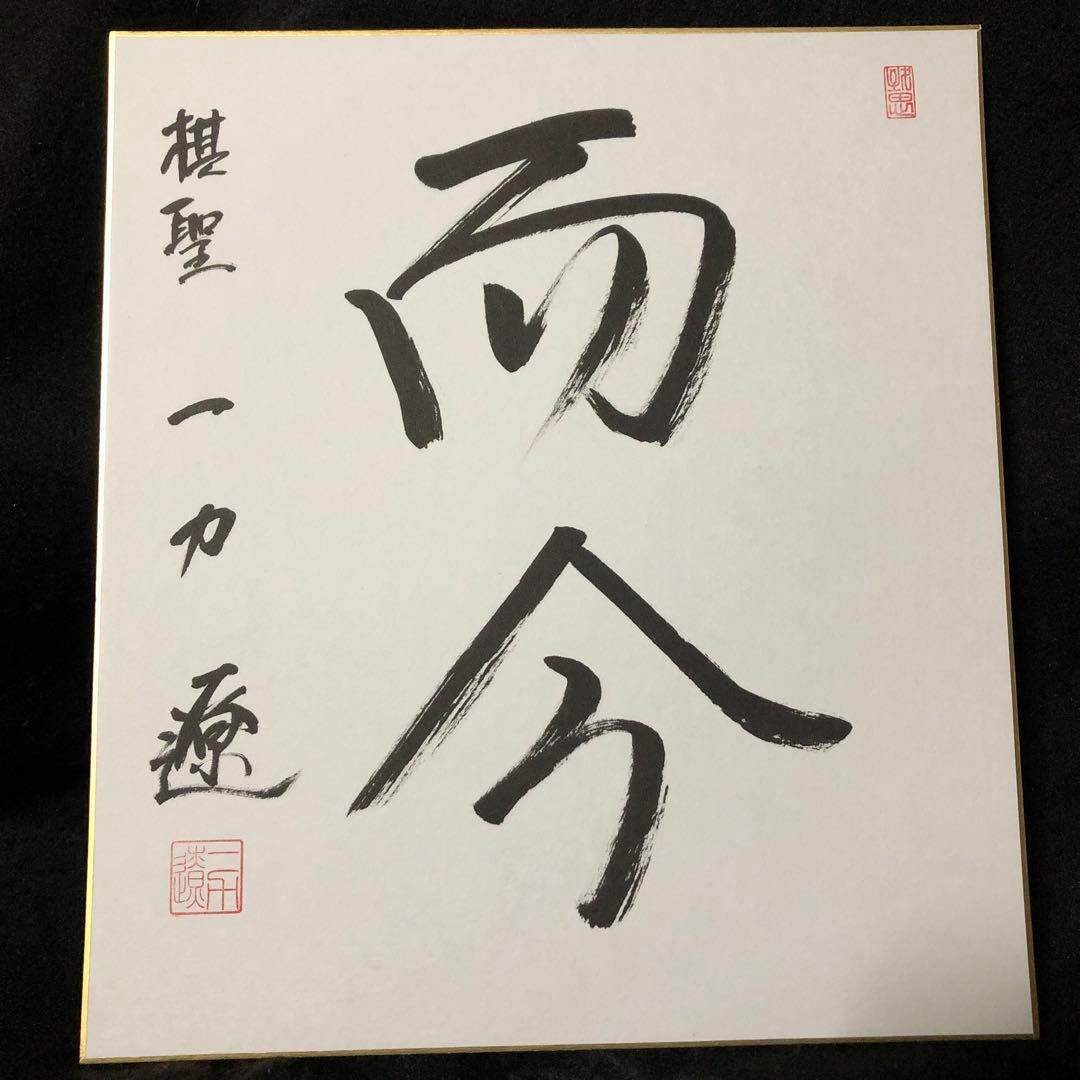 而今
棋聖 一力遼
一力遼